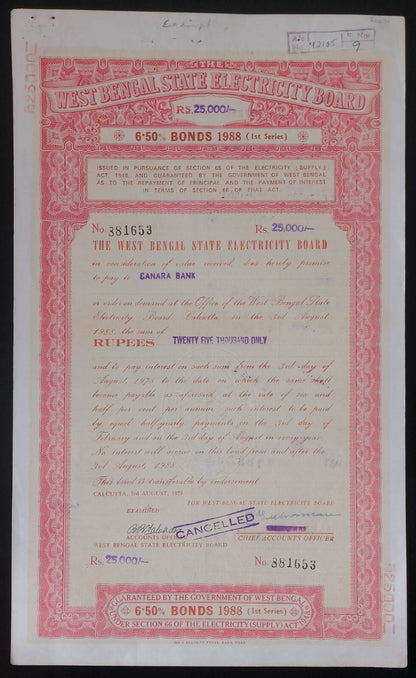 Exempt
A/c No. 42105
F. No. 9
625000
THE
WEST BENGAL STATE ELECTRICITY BOARD
RS.25,000/-
6·50% BONDS 1988 (1st Series)
ISSUED IN PURSUANCE OF SECTION 65 OF THE ELECTRICITY (SUPPLY)
ACT, 1948, AND GUARANTEED BY THE GOVERNMENT OF WEST BENGAL
AS TO THE REPAYMENT OF PRINCIPAL AND THE PAYMENT OF INTEREST
IN TERMS OF SECTION 66 OF THAT ACT.
No. 381653 Rs. 25,000/-
THE WEST BENGAL STATE ELECTRICITY BOARD
in consideration of value received, does hereby promise
to pay to CANARA BANK
or order on demand at the Office of the West Bengal State
Electricity Board, Calcutta, on the 3rd August,
1988, the sum of
RUPEES TWENTY FIVE THOUSAND ONLY
and to pay interest on such sum from the 3rd day of
August, 1978 to the date on which the same shall
become payable as aforesaid at the rate of six and
half per cent per annum, such interest to be paid
by equal half-yearly payments on the 3rd day of
February and on the 3rd day of August in every year.
No interest will accrue on this bond from and after the
3rd August, 1988.
This bond is transferable by endorsement.
CALCUTTA, 3rd AUGUST, 1978
FOR WEST BENGAL STATE ELECTRICITY BOARD
EXAMINED
CANCELLED
ACCOUNTS OFFICER
CHIEF ACCOUNTS OFFICER
WEST BENGAL STATE ELECTRICITY BOARD
Rs. 25,000/- No. 381653
625000
GUARANTEED BY THE GOVERNMENT OF WEST BENGAL
6·50% BONDS 1988 (1st Series)
UNDER SECTION 66 OF THE ELECTRICITY (SUPPLY) ACT 1948